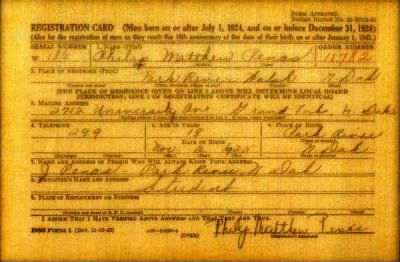 FORM APPROVED
REGISTRATION CARD—(Men born on or after July 1, 1924, and on or before December 31, 1924)
(Also for the registration of men as they reach the 18th anniversary of the date of their birth on or after January 1, 1943.)
SERIAL NUMBER 1. NAME (Print) ORDER NUMBER
W 186 Philip Matthew Penas
2. PLACE OF RESIDENCE (Print)
Park River Walsh N Dak
(THE PLACE OF RESIDENCE GIVEN ON LINE 2 ABOVE WILL DETERMINE LOCAL BOARD
JURISDICTION; LINE 2 OF REGISTRATION CERTIFICATE WILL BE IDENTICAL)
3. MAILING ADDRESS
2712 University Ave Grand Forks N Dak
4. TELEPHONE 5. AGE IN YEARS 6. PLACE OF BIRTH
299 18 Park River
DATE OF BIRTH
Nov N Dak
7. NAME AND ADDRESS OF PERSON WHO WILL ALWAYS KNOW YOUR ADDRESS
J Penas Park River N Dak
8. EMPLOYER'S NAME AND ADDRESS
Student
9. PLACE OF EMPLOYMENT OR BUSINESS
I AFFIRM THAT I HAVE VERIFIED ABOVE ANSWERS AND THAT THEY ARE TRUE.
DSS Form 1 (OVER) Philip Matthew Penas